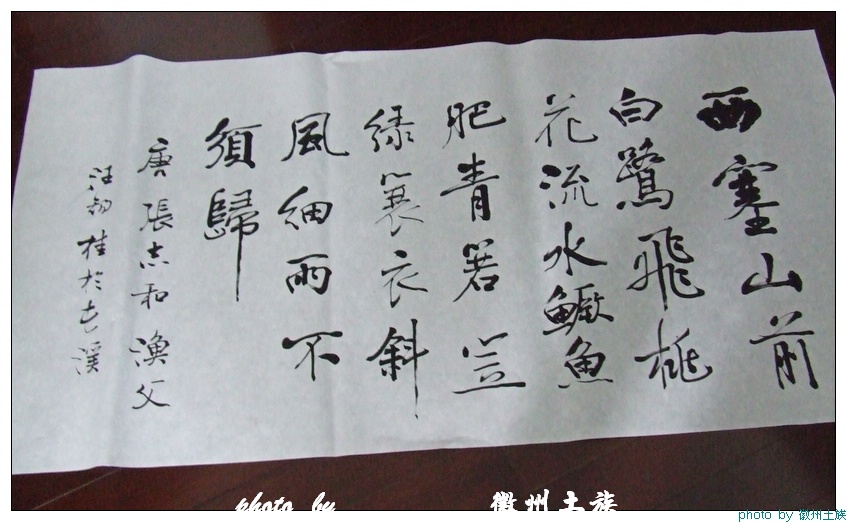 西塞山前
白鹭飛桃
花流水鳜魚
肥青箬笠
緑蓑衣斜
風细雨不
須歸
唐張志和漁父
汪韧桂於屯溪
photo by 徽州土族
photo by 徽州土族